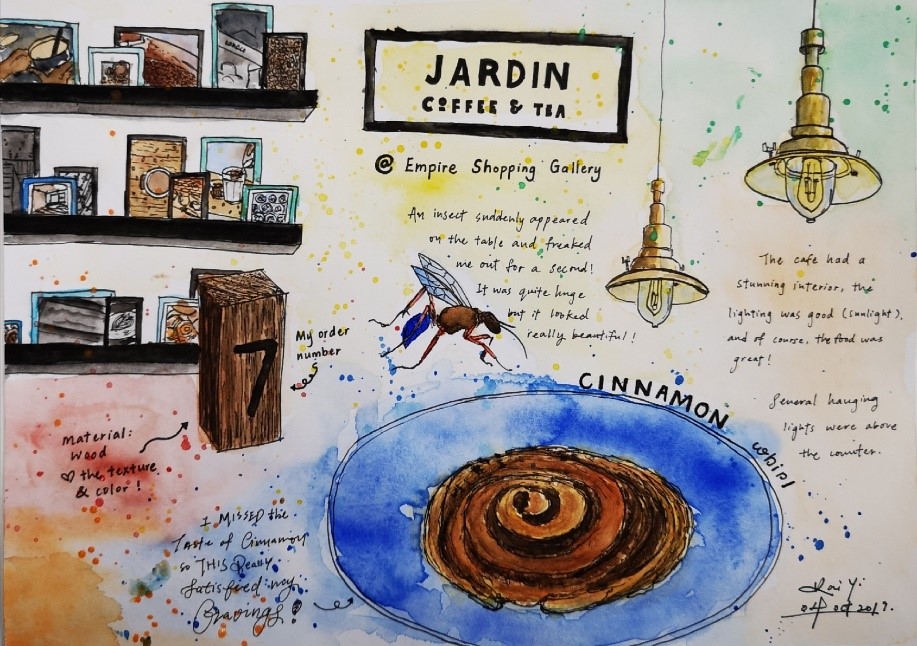 JARDIN
COFFEE & TEA
@ Empire Shopping Gallery
An insect suddenly appeared
on the table and freaked
me out for a second!
It was quite huge
but it looked
really beautiful!
The cafe had a
stunning interior, the
lighting was good (sunlight),
and of course, the food was
great!
Several hanging
lights were above
the counter.
My order
number
7
Material:
wood
♡ the texture
& color!
CINNAMON
whirl
I MISSED the
Taste of Cinnamon
so THIS Really
Satisfied my
Cravings!
Kai Yi
04 Oct 2019.